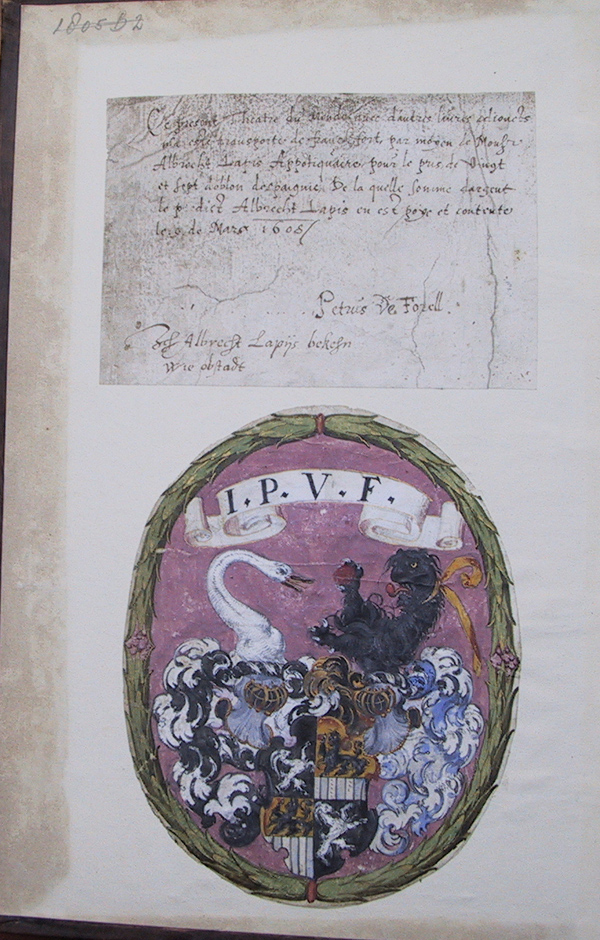 1805 D 2
Ce present Theatre du Monde avec d'autres livres
esté transporte de franckfort par moyen de Monsr
Albrecht Lapis Appotiquaire, pour le pris de Vingt
et Sept doblon despaignie. De la quelle somme dargent
le p dict Albrecht Lapis en est paye et contente
de Mars 1608
Petrus De Forell.
Ich Albrecht Lapijs bekehn
wie obstadt
I. P. V. F.